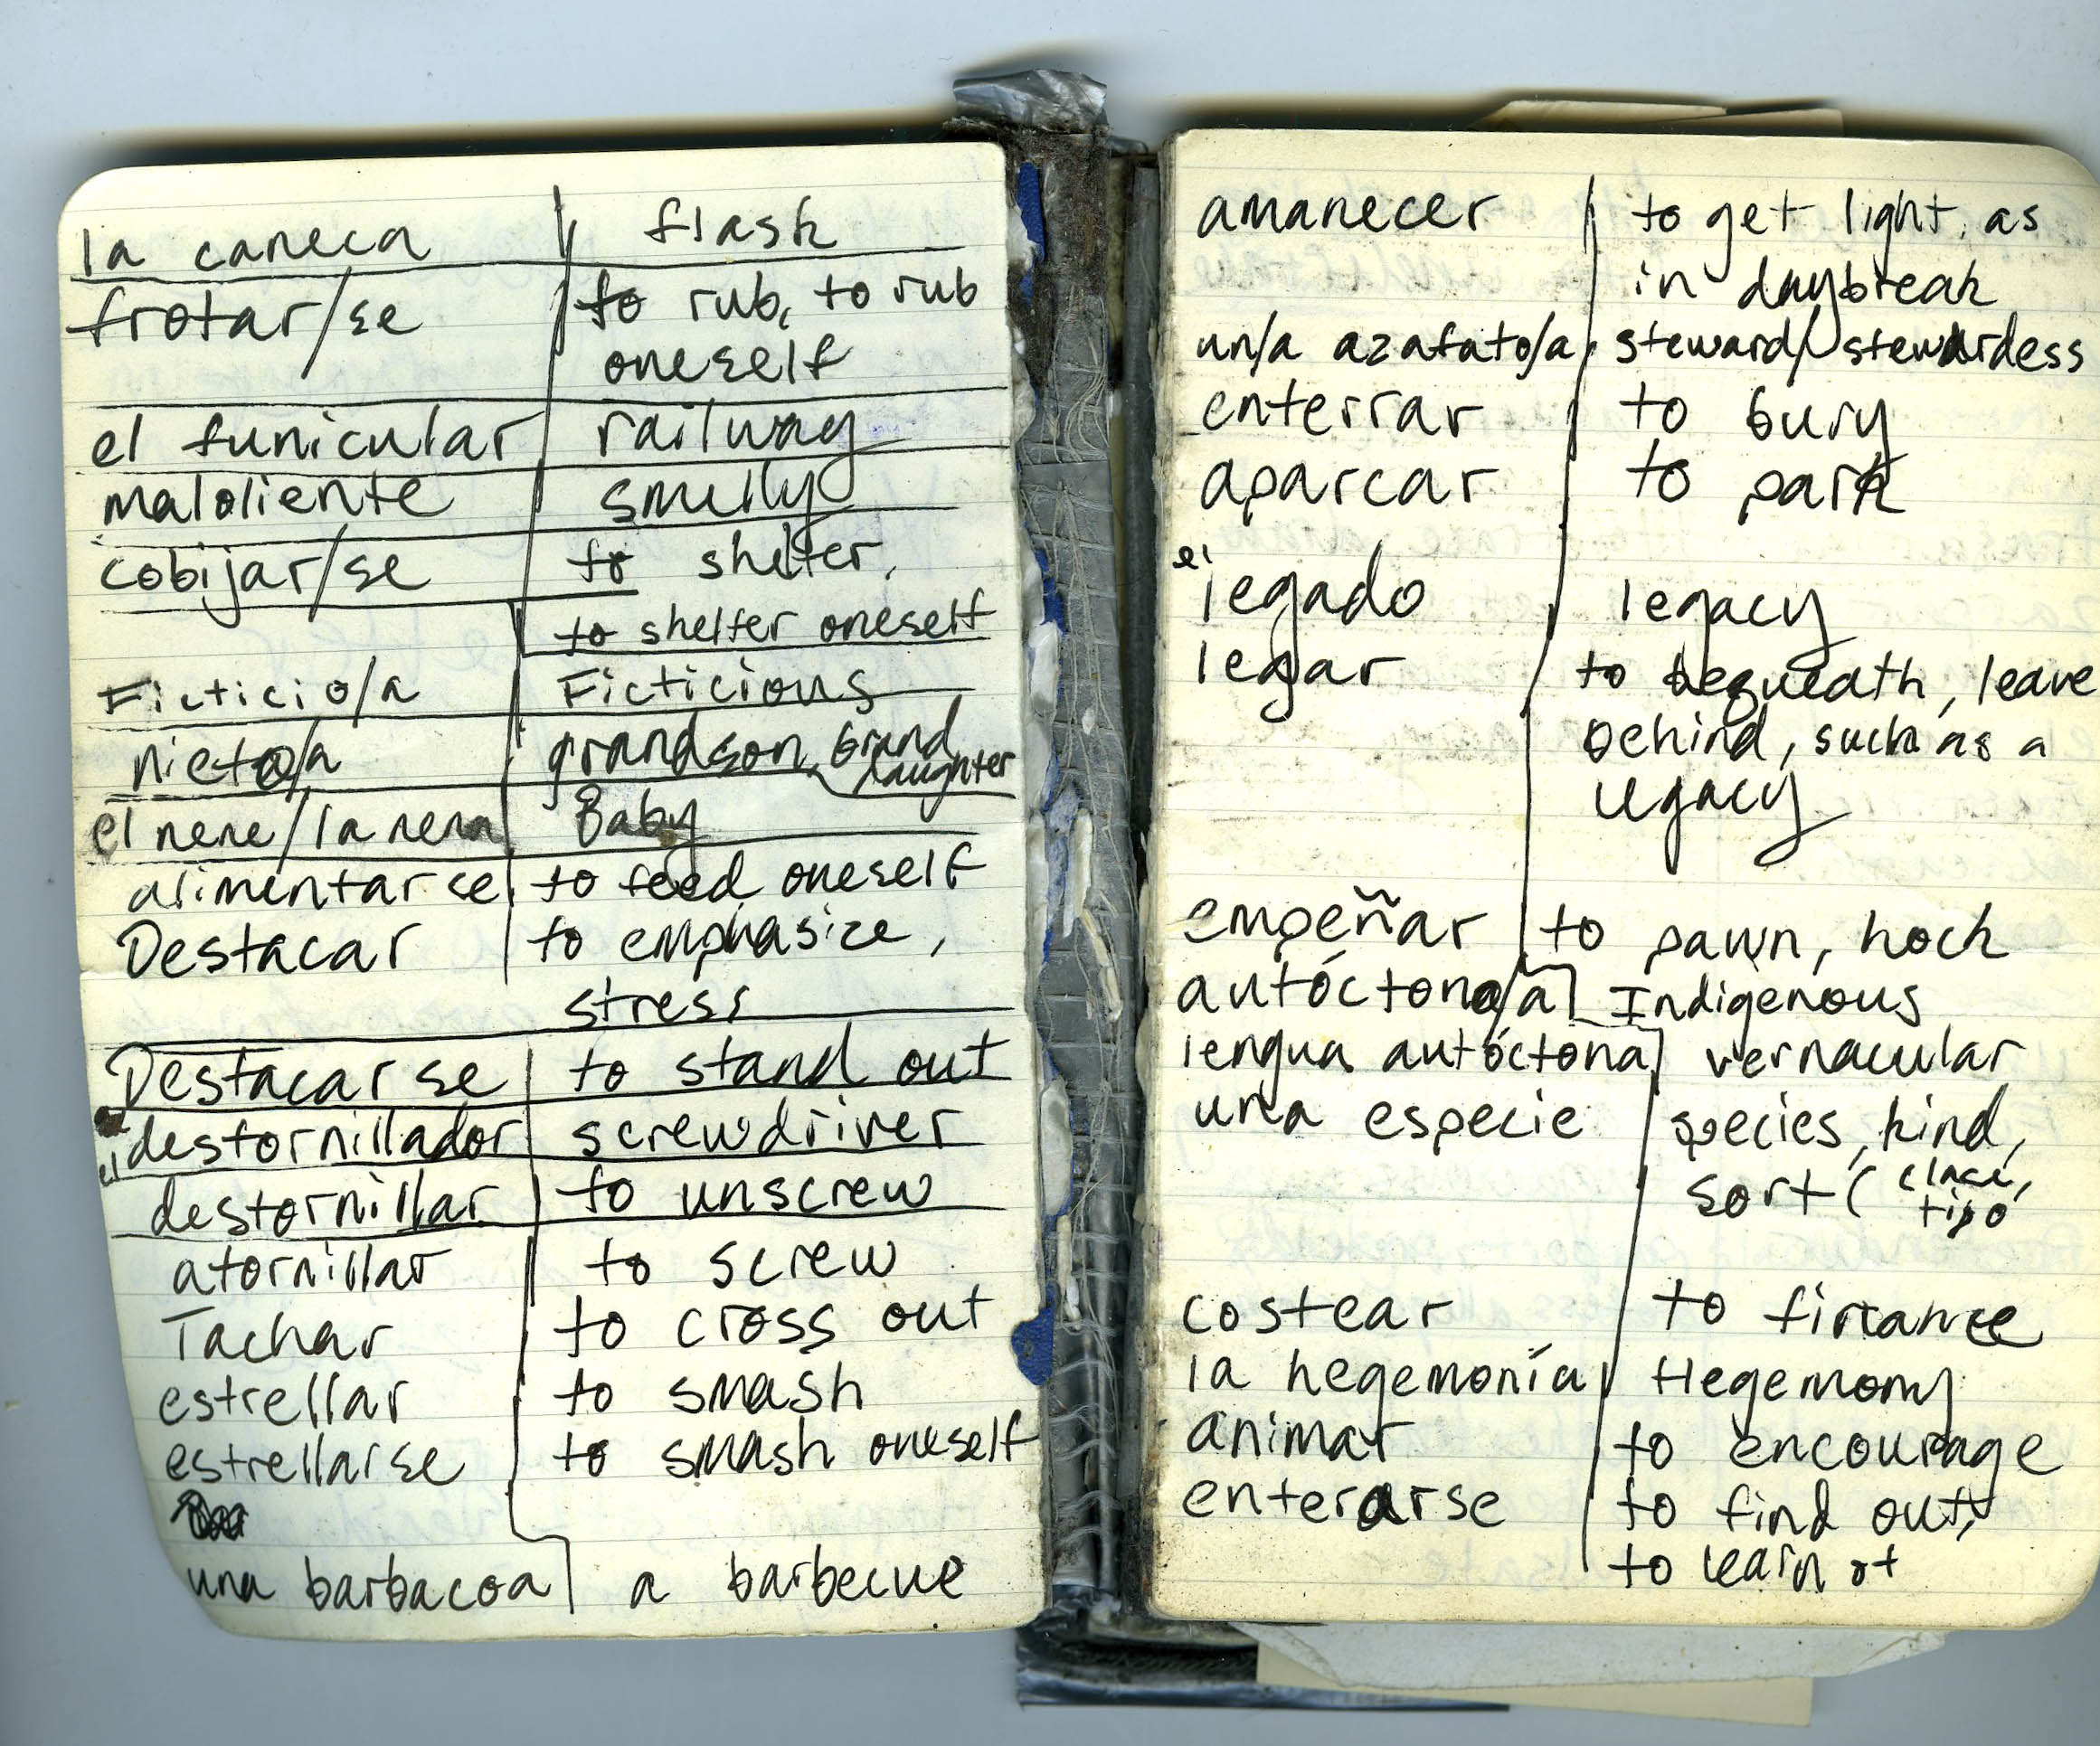 la caneca flask
frotar/se to rub, to rub
oneself
el funicular railway
maloliente smelly
cobijar/se to shelter,
to shelter oneself
Ficticio/a Ficticious
nieto/a grandson, grand
daughter
el nene/la nena Baby
alimentarse to feed oneself
Destacar to emphasize,
stress
Destacarse to stand out
el destornillador screwdriver
destornillar to unscrew
atornillar to screw
Tachar to cross out
estrellar to smash
estrellarse to smash oneself
una barbacoa a barbecue
amanecer to get light, as
in daybreak
un/a azafato/a steward/stewardess
enterrar to bury
aparcar to park
el legado legacy
legar to bequeath, leave
behind, such as a
legacy
empeñar to pawn, hock
autóctono/a Indigenous
lengua autóctona vernacular
una especie species, kind,
sort (clase,
tipo
costear to finance
la hegemonía Hegemony
animar to encourage
enterarse to find out,
to learn of